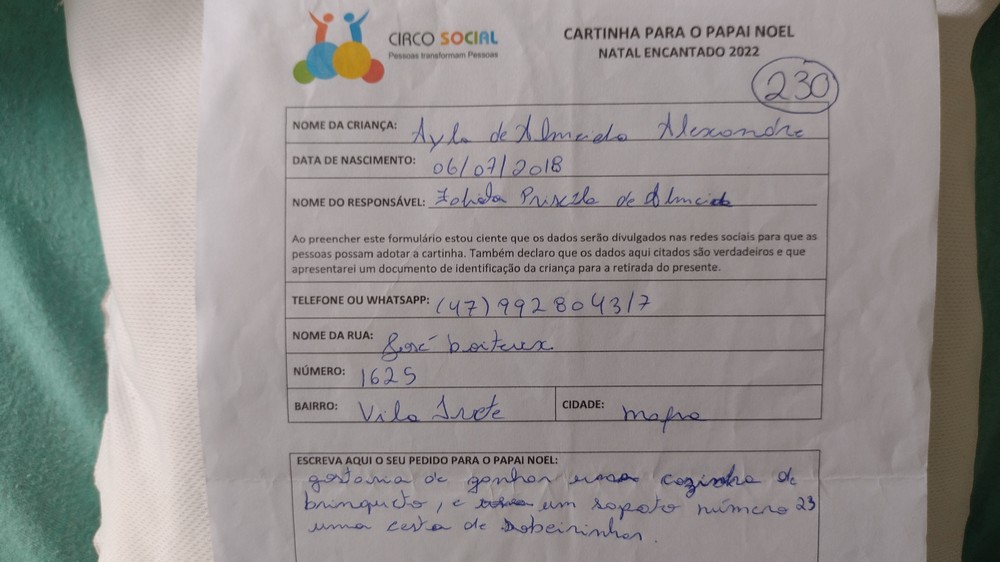 CIRCO SOCIAL
Pessoas transformam Pessoas
CARTINHA PARA O PAPAI NOEL
NATAL ENCANTADO 2022
230
NOME DA CRIANÇA: Ayla de Almeida Alexandre
DATA DE NASCIMENTO: 06/07/2018
NOME DO RESPONSÁVEL: Priscila de Almeida
Ao preencher este formulário estou ciente que os dados serão divulgados nas redes sociais para que as
pessoas possam adotar a cartinha. Também declaro que os dados aqui citados são verdadeiros e que
apresentarei um documento de identificação da criança para a retirada do presente.
TELEFONE OU WHATSAPP: (47) 992804317
NOME DA RUA: José boiteux
NÚMERO: 1625
BAIRRO: Vila Ivete
CIDADE: mafra
ESCREVA AQUI O SEU PEDIDO PARA O PAPAI NOEL:
gostaria de ganhar uma cozinha de
brinqueto, e um sapato número 23
uma cesta de